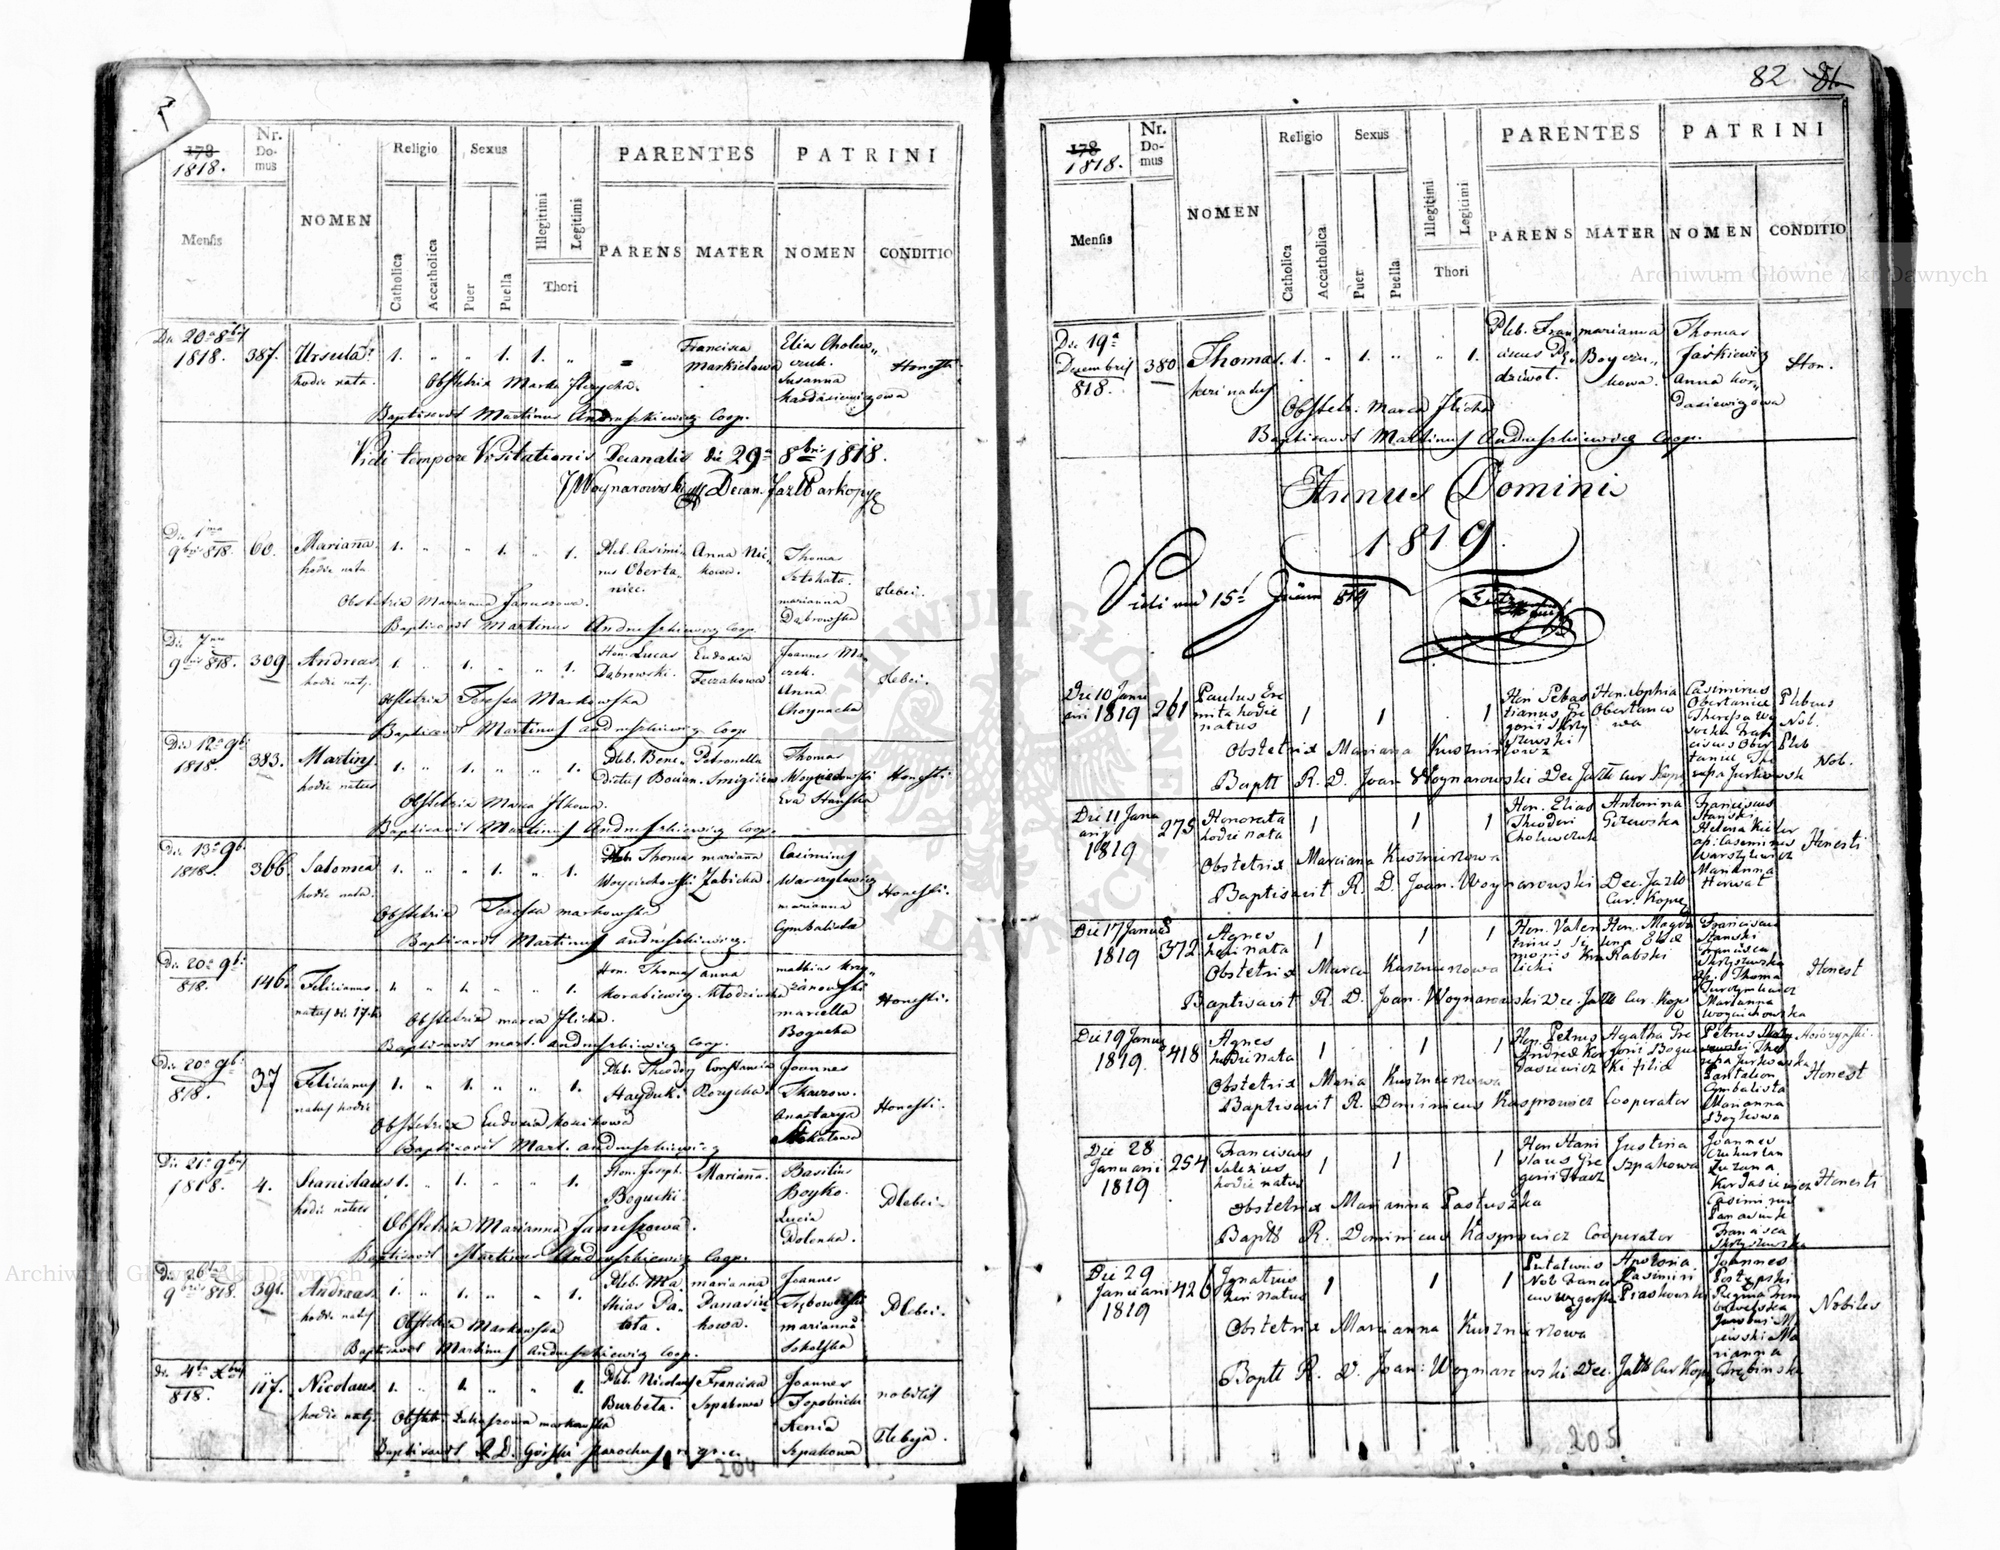 178
1818.
Nr. Domus
NOMEN
Religio
Sexus
PARENTES
PATRINI
Mensis
Catholica
Accatholica
Puer
Puella
Illegitimi
Legitimi
Thori
PARENS
MATER
NOMEN
CONDITIO
Die 20a 8bris
1818.
387.
Ursula
hodie nata.
1. " " 1. 1. "
Francisca
Markielowa
Elias Cholew„
czuk.
Susanna
Kardasiewiczowa
Honesti.
Obstetrix Marta
Baptisavit Martinus Andruszkiewicz Coop.
Vidi tempore Visitationis Decanalis die 29a 8bris 1818.
JWoynarowski Decan. Jazł Par kopy
Die 1ma
9bris 818.
60.
Marianna.
hodie nata
1. " " 1. " 1.
Pleb. Casimi-
rus Oberta-
niec.
Anna
kowa.
Thomas
marianna
Dąbrowska
Plebei.
Obstetrix Marianna Januszowa.
Baptisavit Martinus Andruszkiewicz Coop.
9bris 818.
309.
Andreas
hodie natus.
1. " 1. " " 1.
Hon. Lucas
Dąbrowski.
Eudoxia
Joannes Ma„
czek.
Anna
Choynacka
Plebei.
Obstetrix Teressa Markowska
Baptisavit Martinus Andruszkiewicz Coop
Die 12a 9bris
1818.
383.
Martinus
hodie natus
1. " 1. " " 1.
Pleb. Bene-
dictus Bocian.
Petronella
Thomas
Woyciechowski
Eva Stańska
Honesti.
Obstetrix Marca Ilkowa.
Baptisavit Martinus Andruszkiewicz Coop.
Die 13a 9b
1818.
366.
Salomea
hodie nata.
1. " " 1. " 1.
Pleb. Thomas
Woyciechowski
marianna
Zabicka.
Casimirus
Warszylewicz
marianna
Cymbalista
Honesti.
Obstetrix Teressa markowska
Baptisavit Martinus andruszkiewicz.
Die 20a 9b
818.
146.
Felicianus
natus die 17.
1. " 1. " " 1.
Hon. Thomas
Korabiewicz.
anna
Kłodzińska
mathias Krzy„
żanowski
mariella
Bogucka
Honesti.
Obstetrix marca Ilicka.
Baptisavit mart. andruszkiewicz Coop.
Die 20a 9b
818.
37
Felicianus
natus hodie
1. " 1. " " 1.
Pleb. Theodor
Hayduk.
Constancia
Rozycka.
Joannes
Skarzow.
Anastazya
Honesti.
Obstetrix Eudoxia Kosnikowa
Baptisavit Mart. andruszkiewicz
Die 21a 9bris
1818.
4.
Stanislaus
hodie natus
1. " 1. " " 1.
Hon. Joseph.
Bogucki.
Marianna.
Basilius
Boyko.
Lucia
Dolenka.
Plebei.
Obstetrix Marianna Januszowa.
Baptisavit Martinus Andruszkiewicz Coop.
9bris 818.
396.
Andreas
hodie natus
1. " 1. " " 1.
Pleb. Ma
thias Pa-
tota.
marianna
Panasiu
kowa.
Joannes
Trębowelski
marianna
Sokolska
Plebei.
Obstetrix Markowska
Baptisavit Martinus Andruszkiewicz Coop.
Die 4ta Xbris
818.
117.
Nicolaus
hodie natus.
1. " 1. " " 1.
Pleb. Nicolaus
Burbeta.
Francisca
Szpakowa
Joannes
Topolnicki
Xenia
Szpakowa
nobilis
Plebeja.
Obstetr. Łukaszowa markowska
Baptisavit R. D. Górski parochus r. gr. c.
204
82 81
178
1818.
Nr. Domus
NOMEN
Religio
Sexus
PARENTES
PATRINI
Mensis
Catholica
Accatholica
Puer
Puella
Illegitimi
Legitimi
Thori
PARENS
MATER
NOMEN
CONDITIO
Die 19a
Decembris
818.
380
Thomas
heri natus
1. " 1. " " 1.
Pleb. Fran
ciscus
marianna
Boyczu„
kowa.
Thomas
Jaśkiewicz
Anna Kor„
dasiewiczowa
Hon.
Obstetr: Marca Ilicka
Baptisavit Martinus Andruszkiewicz Coop.
Annus Domini
1819.
Vidi am 15t Jäner 819
Die 10 Janu
arii 1819
261
Paulus Ere
mita hodie
natus
1 1 1
Hon Sebas
tianus Gre
gorii Skrzy
szewski
Hon. Sophia
Obertanco
wa
Casimirus
Obertaniec
Theressa
ciscus Ober
taniec The
resa Jurkowsk
Plebeus
Nob.
Pleb
Nob.
Obstetrix Mariana Kusznirtowa
Baptt R. D. Joan Woynarowski Dec Jazłł Cur Kopy
Die 11 Janu
arii
1819
275
Honorata
hodie nata
1 1 1
Hon. Elias
Theodori
Cholewczuk
Antonina
Gizewska
Franciscus
Stański
Helena
Casimirus
Warszylewicz
Marianna
Horwat
Honesti
Obstetrix Mariana Kusznirtowa
Baptisavit R. D. Joan. Woynarowski Dec. Jazłł
Cur. Kopy
Die 17 Januar
1819
372
Agnes
hodie nata
1 1 1
Hon. Valen
tinus Sy
monis Kra
licki
Hon. Magda
lena
Rabski
Franciscus
Stanski
Francisca
Skryszewska
Thoma
Marianna
Woyciechowska
Honest
Obstetrix Marca Kusznierowa
Baptisavit R. D. Joan. Woynarowski Dec. Jazłł Cur. Kopy
Die 19 Janua
1819.
418
Agnes
hodie nata
1 1 1
Hon. Petrus
Andreæ Kor
dasiewicz
Agatha Gre
gorii Bogu
cki filia
Petrus
resa Jurkowska
Pantaleon
Cymbalista
Marianna
Boykowa
Honest
Obstetrix Maria Kusznierowa
Baptisavit R. Dominicus Kasprowicz Cooperator
Die 28
Januarii
1819
254
Franciscus
Salezius
hodie natus
1 1 1
Hon Stani
slaus Gre
gorii Tkacz
Justina
Szpakowa
Joannes
Zuzana
Kordasiewicz
Casimirus
Panasiuk
Francisca
Skryszewska
Honesti
Obstetrix Marianna Pastuszka
Baptt R. Dominicus Kasprowicz Cooperator
Die 29
Januarii
1819
426
Ignatius
heri natus
1 1 1
Putativus
Nob Franci
cus Węgerski
Apolonia
Casimiri
Piaskowski
Joannes
Regina Trem
bowelska
Ma
rianna
Trębinska
Nobiles
Obstetrix Marianna Kusznirtowa
Baptt R. D. Joan: Woynarowski Dec. Jazłł Cur Kopy
205
Archiwum Główne Akt Dawnych
Archiwum Główne Akt Dawnych
ARCHIWUM GŁÓWNE AKT DAWNYCH